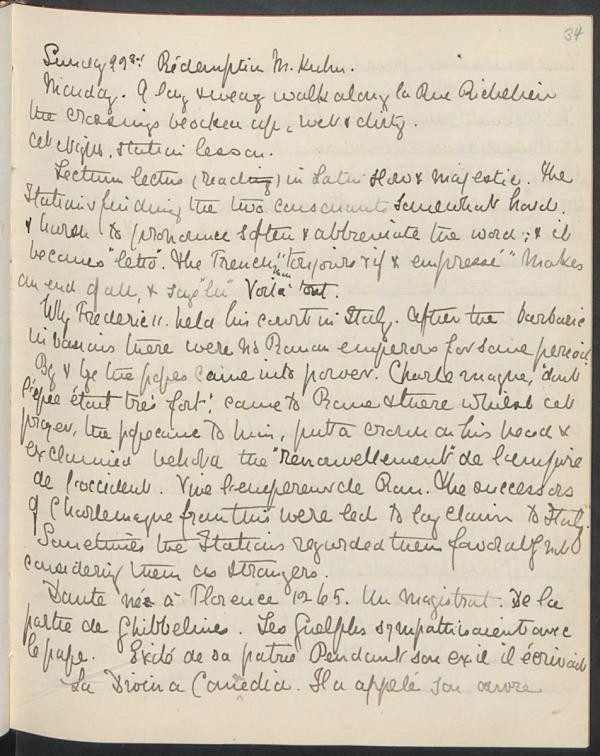 34
Sunday 22nd Rédemption M. Kuhn.
Monday. A long & weary walk along la Rue Richelieu
the crossings broken up, wet & dirty.
at night, Italian lesson.
Lectum lectus (reading) in Latin slow & majestic. The
Italians finding the two consonants somewhat hard
& harsh to pronounce soften & abbreviate the word; & it
becomes "letto". The French "toujours vif & empressé" makes
an end of all, & says "lu" Voilà tout.
Why Frederic II. held his court in Italy. After the barbaric
invasions there were no Roman emperors for some period
By & by the popes came into power. Charlemagne, 'dont
l'épée était très fort', came to Rome & there whilst at
prayer, the pope came to him, put a crown on his head &
exclaimed behold the "renouvellement" de l'empire
de l'occident. Vive l'empereur de Rom. The successors
of Charlemagne from this were led to lay claim to Italy.
Sometimes the Italians regarded them favorably not
considering them as strangers.
Dante né à Florence 1265. Un magistrat. De la
partie de Ghibbelines. Les Guelphs sympathisaient avec
le pape. Exilé de sa patrie Pendant son exil il écrivait
La Divina Comedia. Il a appelé son œuvre